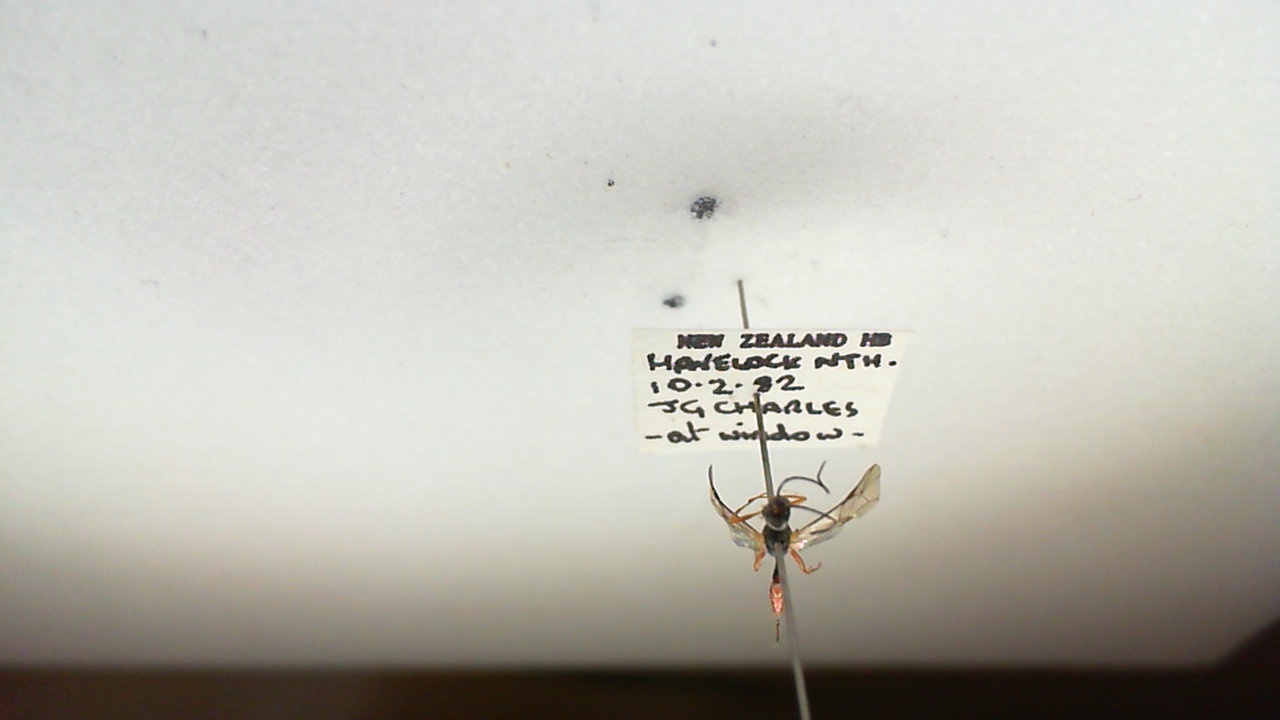 NEW ZEALAND HB
HAVELOCK NTH.
10.2.82
JG CHARLES
-at window-